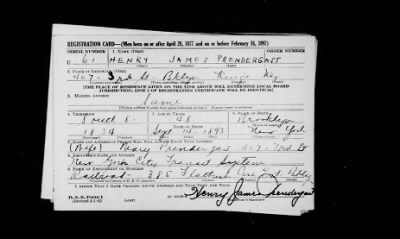 REGISTRATION CARD—(Men born on or after April 28, 1877 and on or before February 16, 1897)
SERIAL NUMBER 1. NAME (Print) ORDER NUMBER
U 61 HENRY JAMES PRENDERGAST
2. PLACE OF RESIDENCE (Print)
407 - 3rd St. Bklyn Kings N.Y.
[THE PLACE OF RESIDENCE GIVEN ON THE LINE ABOVE WILL DETERMINE LOCAL BOARD
JURISDICTION; LINE 2 OF REGISTRATION CERTIFICATE WILL BE IDENTICAL]
3. MAILING ADDRESS
Same
4. TELEPHONE 5. AGE IN YEARS 6. PLACE OF BIRTH
South 8- 48 Brooklyn
1834 Sept 14 1893 New York
7. NAME AND ADDRESS OF PERSON WHO WILL ALWAYS KNOW YOUR ADDRESS
(Wife) Mary Prendergast 407-3rd St
8. EMPLOYER'S NAME AND ADDRESS
New York City Transit System
9. PLACE OF EMPLOYMENT OR BUSINESS
Railroad - 385 Flatbush Ave Ext Bklyn
I AFFIRM THAT I HAVE VERIFIED ABOVE ANSWERS AND THAT THEY ARE TRUE.
D. S. S. Form 1
Henry James Prendergast